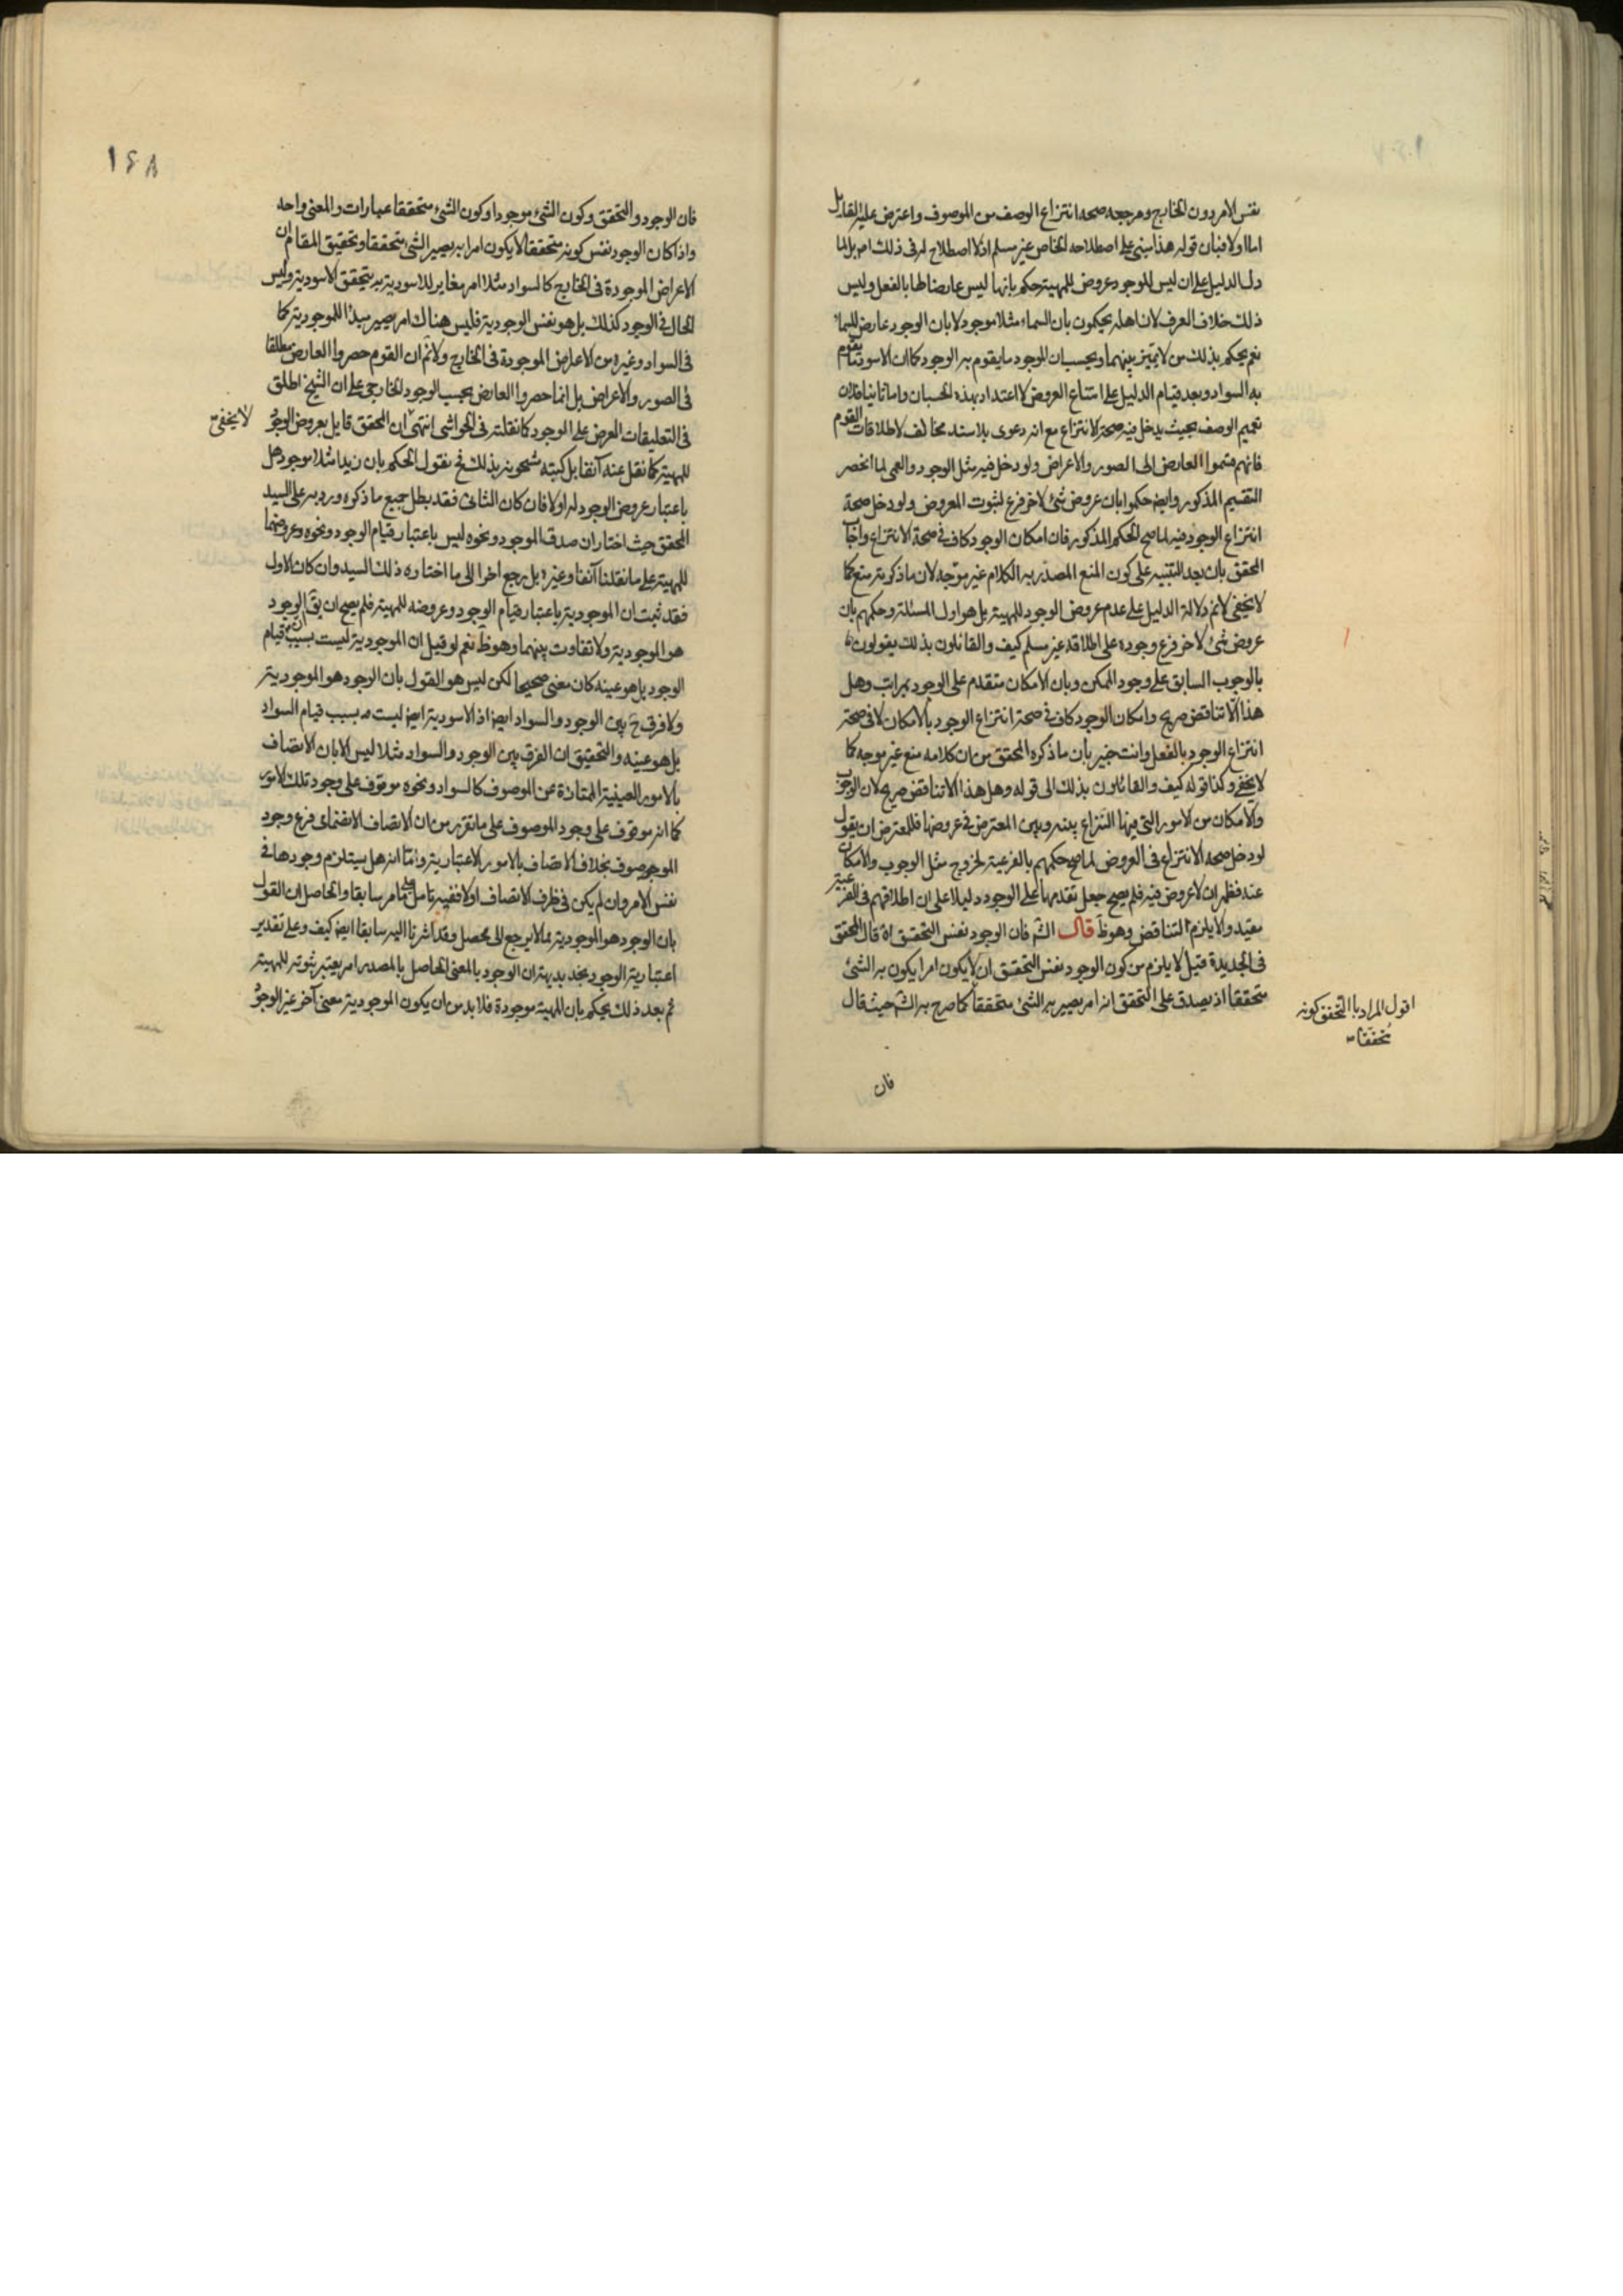 نفس الامر دون الخارج ومرجعه صحه انتزاع الوصف من الموصوف واعترض عليه القايل
اما اولا فبان قوله هذا مبنى على اصطلاحه الخاص غير مسلم اذ لا اصطلاح له فى ذلك امر بل لما
دل الدليل على ان ليس للوجود عروض للمهية حكم بانها ليس عارضا لها بالفعل وليس
ذلك خلاف العرف لان اهله يحكمون بان السماء مثلا موجود لا بان الوجود عارض للسماء
نعم يحكم بذلك من لا يميز بينهما ويحسب ان الموجود ما يقوم به الوجود كما ان الاسود ما يقوم
به السواد وبعد قيام الدليل على امتناع العروض لا اعتداد بهذه الحسبان واما ثانيا فلان
تعميم الوصف بحيث يدخل فيه صحة الانتزاع مع انه دعوى بلا سند مخالف لاطلاقات القوم
فانهم قسموا العارض الى الصور والاعراض ولو دخل فيه مثل الوجود والعمى لما انحصر
التقسيم المذكور وايضا حكموا بان عروض شئ لاخر فرع لثبوت المعروض ولو دخل صحة
انتزاع الوجود فيه لما صح الحكم المذكور فان امكان الوجود كاف فى صحة الانتزاع واجاب
المحقق بان بعد التنبيه على كون المنع المصدر به الكلام غير موجه لان ما ذكويته منع كما
لا يخفى لا نم دلالة الدليل على عدم عروض الوجود للمهية بل هو اول المسئلة وحكمهم بان
عروض شئ لاخر فرع وجوده على اطلاقه غير مسلم كيف والقائلون بذلك يقولون
بالوجوب السابق على وجود الممكن وبان الامكان متقدم على الوجود بمراتب وهل
هذا الا تناقض صريح وامكان الوجود كاف فى صحة انتزاع الوجود بالامكان لا فى صحة
انتزاع الوجود بالفعل وانت خبير بان ما ذكره المحقق من ان كلامه منع غير موجه كما
لا يخفى وكذا قوله كيف والقائلون بذلك الى قوله وهل هذا الا تناقض صريح لان الوجوب
والامكان من الامور التى فيها النزاع بينه وبين المعترض فى عروضها فللمعترض ان يقول
لو دخل صحه الانتزاع فى العروض لما صح حكمهم بالفرعية لخروج مثل الوجوب والامكان
عنه فظهر ان لا عروض فيه فلم يصح جعل تقدمها على الوجود دليلا على ان اطلاقهم فى الفرعية
مقيد والا يلزم التناقض وهو ظ قال الش فان الوجود نفس التحقق اه قال المحقق
فى الجديدة قيل لا يلزم من كون الوجود نفس التحقق ان لا يكون امرا يكون به الشئ
متحققا اذ يصدق على التحقق انه امر يصير به الشئ متحققا كما صرح به الش حيث قال
اقول المراد باالتحقق كونه
متحققا
فان
١٤٨
فان الوجود والتحقق وكون الشئ موجودا وكون الشئ متحققا عبارات والمعنى واحد
واذا كان الوجود نفس كونه متحققا لا يكون امرا به يصير الشئ متحققا وتحقيق المقام ان
الاعراض الموجودة فى الخارج كالسواد مثلا امر مغاير للاسودية به يتحقق الاسودية وليس
الحال فى الوجود كذلك بل هو نفس الوجودية فليس هناك امر يصير مبدا للموجودية كما
فى السواد وغيره من الاعراض الموجودة فى الخارج ولا نم ان القوم حصروا العارض مطلقا
فى الصور والاعراض بل انما حصروا العارض بحسب الوجود الخارجى على ان الشيخ اطلق
فى التعليقات العرض على الوجود كما نقلته فى الحواشى انتهى ان المحقق قايل بعروض الوجود
لا يخفى
للمهية كما نقل عنه آنفا بل كتبه مشحونه بذلك فح نقول الحكم بان زيدا مثلا موجود هل
باعتبار عروض الوجود له او لا فان كان الثانى فقد بطل جميع ما ذكره ورد به على السيد
المحقق حيث اختار ان صدق الموجود ونحوه ليس باعتبار قيام الوجود ونحوه وعروضها
للمهية على ما نقلنا آنفا وغيره بل رجع اخرا الى ما اختاره ذلك السيد وان كان الاول
فقد ثبت ان الموجودية باعتبار قيام الوجود وعروضه للمهية فلم يصح ان يق الوجود
هو الموجودية ولا تفاوت بينهما وهو ظ نعم لو قيل ان الموجودية ليست بسبب قيام
الوجود بل هو عينه كان معنى صحيحا لكن ليس هو القول بان الوجود هو الموجودية
ولا فرق ح بين الوجود والسواد ايضا اذ الاسودية ايضا ليست بسبب قيام السواد
بل هو عينه والتحقيق ان الفرق بين الوجود والسواد مثلا ليس الا بان الاتصاف
بالامور العينية الممتازة عن الموصوف كالسواد ونحوه موقوف على وجود تلك الامور
كما انه موقوف على وجود الموصوف على ما تقرر من ان الاتصاف الانضمامى فرع وجود
الموصوف بخلاف الاتصاف بالامور الاعتبارية واما انه هل يستلزم وجودها فى
نفس الامر وان لم يكن فى ظرف الاتصاف او لا ففيه تامل كما مر سابقا والحاصل ان القول
بان الوجود هو الموجودية مما لا يرجع الى محصل وقد اشرنا اليه سابقا ايضا كيف وعلى تقدير
اعتبارية الوجود نجد بديهة ان الوجود بالمعنى الحاصل بالمصدر امر يعتبر ثبوته للمهية
ثم بعد ذلك يحكم بان المهية موجودة فلا بد من ان يكون الموجودية معنى آخر غير الوجود